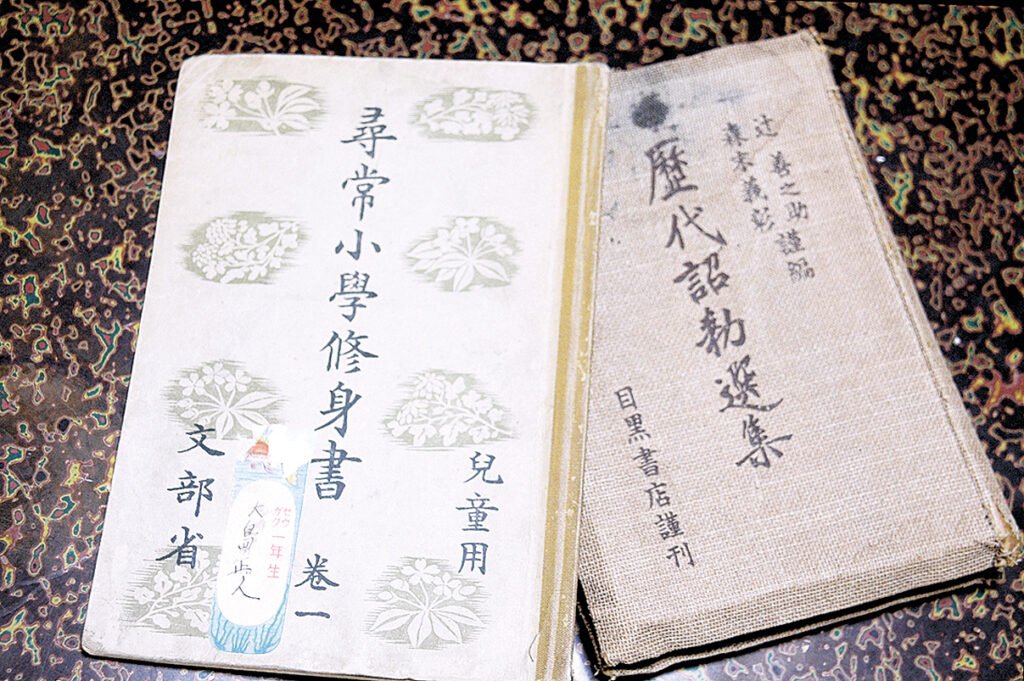 兒童用
尋常小學修身書
卷一
文部省
セウガク
一年生
正人
辻 善之助 謹編
森末義彰
歷代詔勅選集
目黑書店謹刊